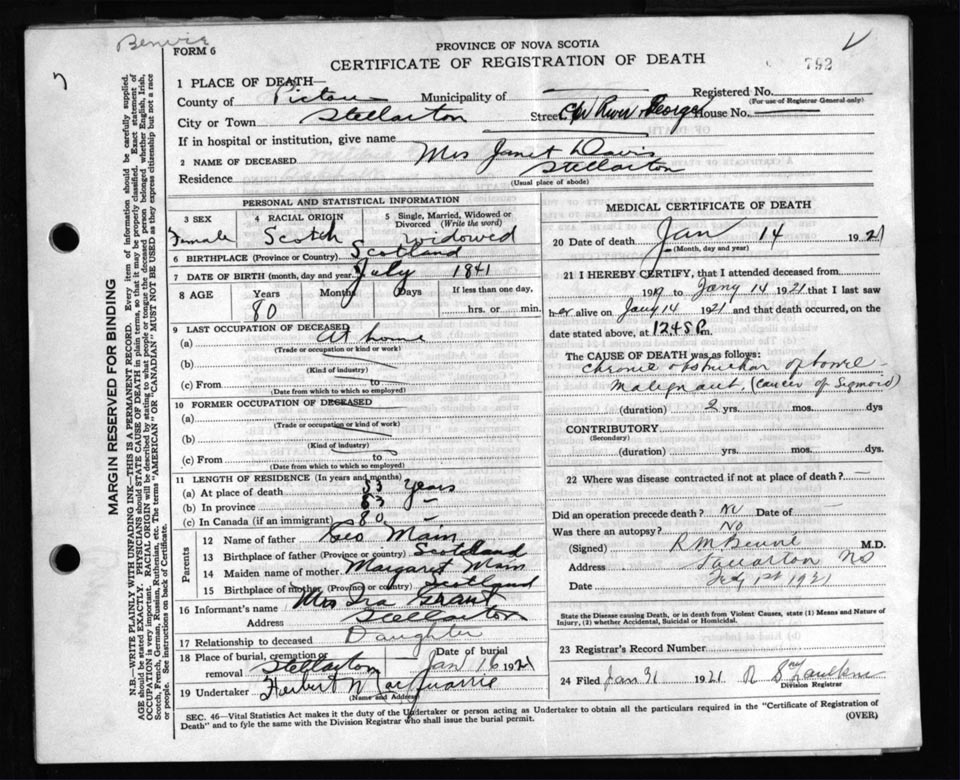 Benvie
FORM 6
PROVINCE OF NOVA SCOTIA
CERTIFICATE OF REGISTRATION OF DEATH
792
1 PLACE OF DEATH—
County of Pictou Municipality of — Registered No.
(For use of Registrar General only)
City or Town Stellarton Street River George House No.
If in hospital or institution, give name
2 NAME OF DECEASED Mrs Janet Davis
Residence Stellarton
(Usual place of abode)
PERSONAL AND STATISTICAL INFORMATION
3 SEX 4 RACIAL ORIGIN 5 Single, Married, Widowed or Divorced (Write the word)
Female Scotch Widowed
6 BIRTHPLACE (Province or Country) Scotland
7 DATE OF BIRTH (month, day and year) July 1841
8 AGE Years Months Days If less than one day,
80 hrs. or min.
9 LAST OCCUPATION OF DECEASED
(a) At home
(Trade or occupation or kind of work)
(b)
(Kind of industry)
(c) From to
(Date from which to which so employed)
10 FORMER OCCUPATION OF DECEASED
(a)
(Trade or occupation or kind of work)
(b)
(Kind of industry)
(c) From to
(Date from which to which so employed)
11 LENGTH OF RESIDENCE (In years and months)
(a) At place of death 53 years
(b) In province 53 –
(c) In Canada (if an immigrant) 80 –
Parents
12 Name of father Geo Main
13 Birthplace of father (Province or country) Scotland
14 Maiden name of mother Margaret Main
15 Birthplace of mother (Province or country) Scotland
16 Informant's name Mrs Ira Grant
Address Stellarton
17 Relationship to deceased Daughter
18 Place of burial, cremation or removal Stellarton Date of burial Jan 16 1921
19 Undertaker Herbert W MacQuarrie
(Name and Address)
MEDICAL CERTIFICATE OF DEATH
20 Date of death Jan 14 1921
(Month, day and year)
21 I HEREBY CERTIFY, that I attended deceased from
19 to Jany 14 1921 that I last saw
her alive on Jany 14 1921 and that death occurred, on the
date stated above, at 1245 P m.
The CAUSE OF DEATH was as follows:
Chronic obstruction of bowel
malignant, (cancer of Sigmoid)
(duration) 2 yrs. mos. dys
CONTRIBUTORY
(Secondary)
(duration) yrs. mos. dys
22 Where was disease contracted if not at place of death? —
Did an operation precede death? No Date of —
Was there an autopsy? No
(Signed) R M Benvie M.D.
Address Stellarton NS
Date Feb 1st 1921
State the Disease causing Death, or in death from Violent Causes, state (1) Means and Nature of Injury, (2) whether Accidental, Suicidal or Homicidal.
23 Registrar's Record Number
24 Filed Jan 31 1921
Division Registrar
SEC. 46—Vital Statistics Act makes it the duty of the Undertaker or person acting as Undertaker to obtain all the particulars required in the "Certificate of Registration of
Death" and to fyle the same with the Division Registrar who shall issue the burial permit.
(OVER)
MARGIN RESERVED FOR BINDING
N.B.—WRITE PLAINLY WITH UNFADING INK—THIS IS A PERMANENT RECORD. Every item of information should be carefully supplied.
AGE should be stated EXACTLY. PHYSICIANS should STATE CAUSE OF DEATH in plain terms, so that it may be properly classified. Exact statement of
OCCUPATION is very important. RACIAL ORIGIN will be described by stating to what people or tongue the deceased person belonged whether English, Irish,
Scotch, French, German, Russian, Ruthenian, etc. The terms "AMERICAN" OR "CANADIAN" MUST NOT BE USED as they express citizenship but not a race
or people. See instructions on back of Certificate.